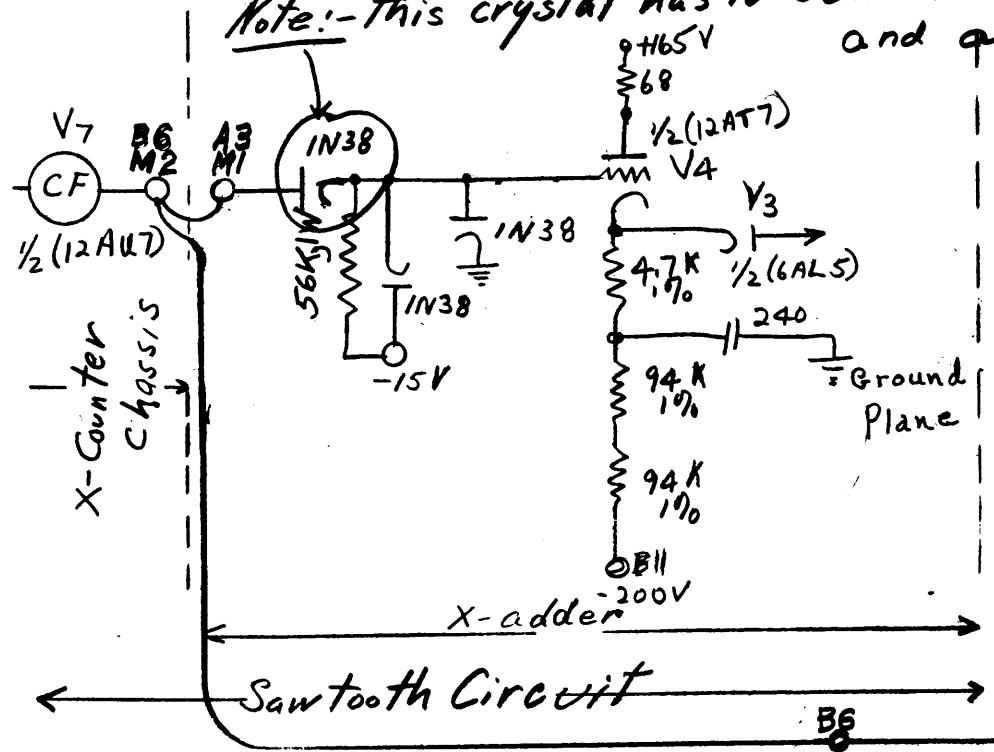 Note:- This crystal has
and
+165V
68
V7
B6
M2
A3
M1
1N38
1/2 (12AT7)
V4
CF
1/2 (12AU7)
56K 1W
1N38
1N38
-15V
V3
1/2 (6AL5)
4.7K
1%
240
Ground
Plane
94K
1%
94K
1%
B11
-200V
X-Counter
Chassis
X-adder
Sawtooth Circuit
B6